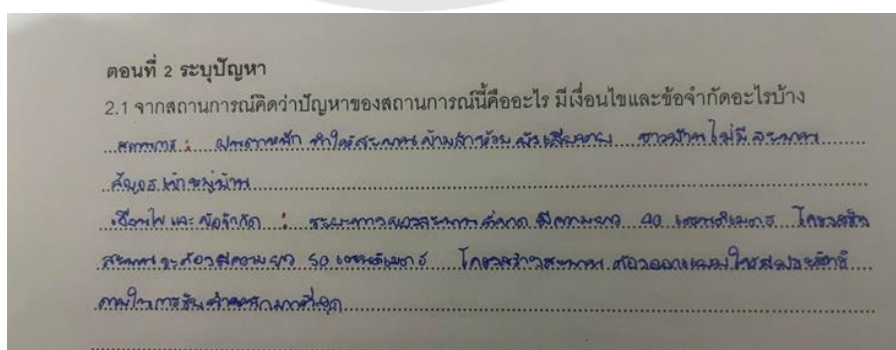 ตอนที่ 2 ระบุปัญหา
2.1 จากสถานการณ์คิดว่าปัญหาของสถานการณ์นี้คืออะไร มีเงื่อนไขและข้อจำกัดอะไรบ้าง
ฝนตกหนัก ทำให้สะพานข้ามลำห้วยพังเสียหาย ชาวบ้านไม่มีสะพาน
สัญจรเข้าหมู่บ้าน
เงื่อนไข และ ข้อจำกัด : ระยะทางของสะพานที่ขาด มีความยาว 40 เซนติเมตร โครงสร้าง
สะพานจะต้องมีความยาว 50 เซนติเมตร โครงสร้างสะพาน ต้องออกแบบให้มีประสิทธิ
ภาพในการรับน้ำหนักมากที่สุด